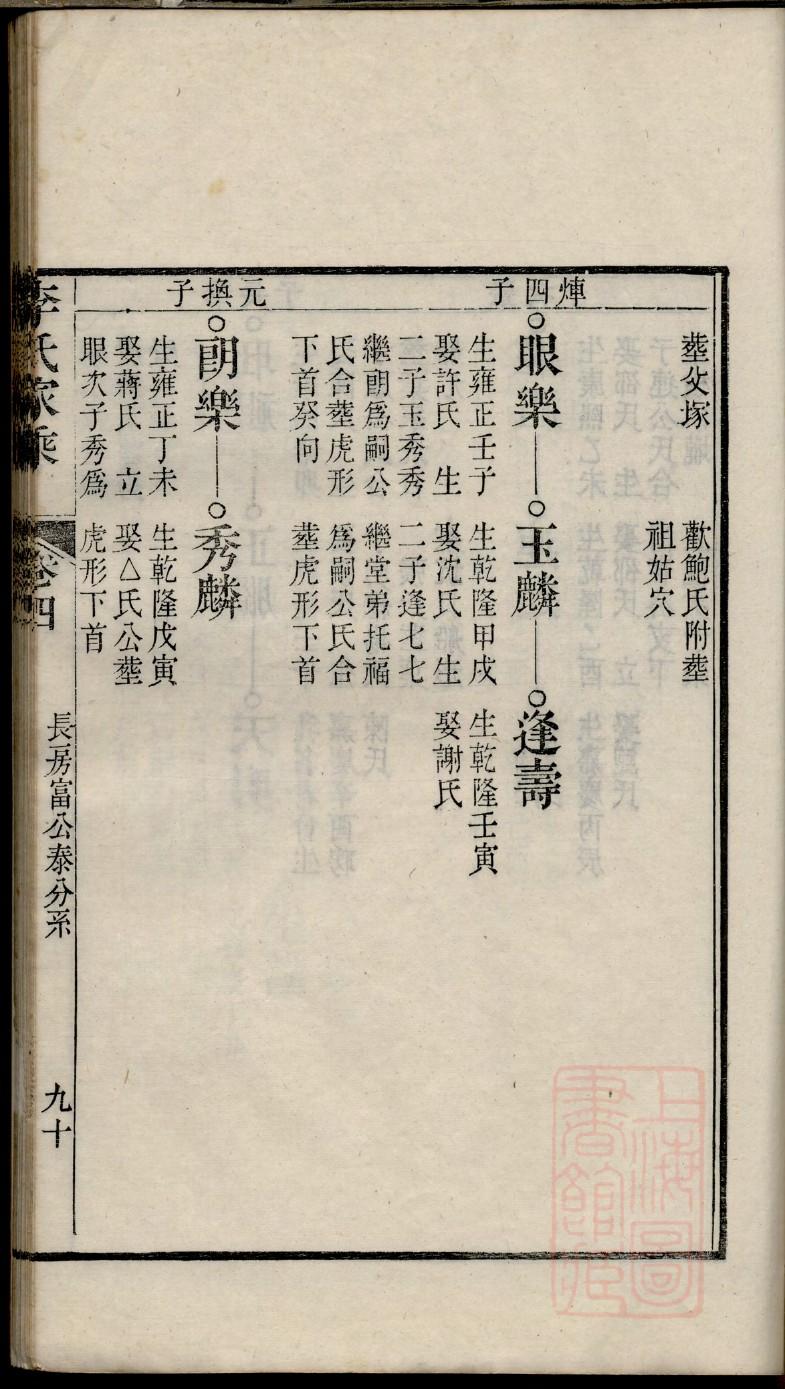 塟父塚
歡鮑氏附塟
祖姑穴
煇四子
眼樂
生雍正壬子
娶許氏 生
二子玉秀秀
繼朗爲嗣公
氏合塟虎形
下首癸向
玉麟
生乾隆甲戌
娶沈氏 生
二子逢七七
繼堂弟托福
爲嗣公氏合
塟虎形下首
逢壽
生乾隆壬寅
娶謝氏
元換子
朗樂
生雍正丁未
娶蔣氏 立
眼次子秀爲
秀麟
生乾隆戊寅
娶△氏公塟
虎形下首
李氏家乘
卷四
長房富公泰分系
九十
上海圖書館藏